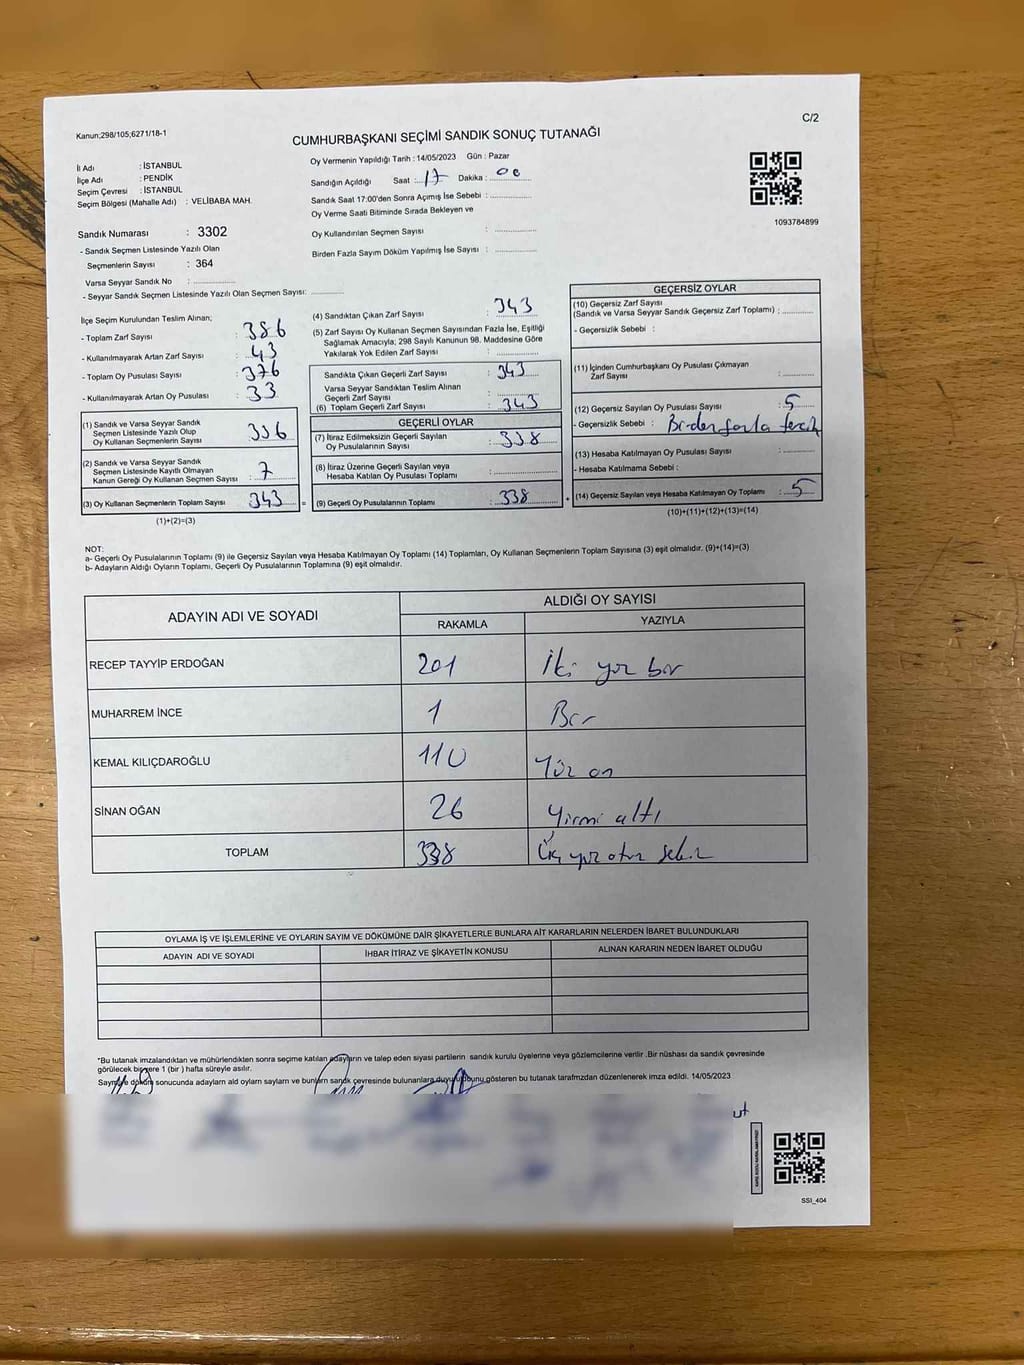 Kanun;298/105;6271/18-1
C/2
CUMHURBAŞKANI SEÇİMİ SANDIK SONUÇ TUTANAĞI
İl Adı : İSTANBUL
İlçe Adı : PENDİK
Seçim Çevresi : İSTANBUL
Seçim Bölgesi (Mahalle Adı) : VELİBABA MAH.
Oy Vermenin Yapıldığı Tarih : 14/05/2023 Gün : Pazar
Sandığın Açıldığı Saat : 17 Dakika : 00
Sandık Saat 17:00'den Sonra Açımış İse Sebebi :
Oy Verme Saati Bitiminde Sırada Bekleyen ve
Oy Kullandırılan Seçmen Sayısı :
Birden Fazla Sayım Döküm Yapılmış İse Sayısı :
1093784899
Sandık Numarası : 3302
- Sandık Seçmen Listesinde Yazılı Olan
Seçmenlerin Sayısı : 364
Varsa Seyyar Sandık No :
- Seyyar Sandık Seçmen Listesinde Yazılı Olan Seçmen Sayısı:
İlçe Seçim Kurulundan Teslim Alınan;
- Toplam Zarf Sayısı : 386
- Kullanılmayarak Artan Zarf Sayısı : 43
- Toplam Oy Pusulası Sayısı : 376
- Kullanılmayarak Artan Oy Pusulası : 33
(1) Sandık ve Varsa Seyyar Sandık
Seçmen Listesinde Yazılı Olup
Oy Kullanan Seçmenlerin Sayısı 336
(2) Sandık ve Varsa Seyyar Sandık
Seçmen Listesinde Kayıtlı Olmayan
Kanun Gereği Oy Kullanan Seçmen Sayısı : 7
(3) Oy Kullanan Seçmenlerin Toplam Sayısı 343 =
(1)+(2)=(3)
(4) Sandıktan Çıkan Zarf Sayısı : 343
(5) Zarf Sayısı Oy Kullanan Seçmen Sayısından Fazla İse, Eşitliği
Sağlamak Amacıyla; 298 Sayılı Kanunun 98. Maddesine Göre
Yakılarak Yok Edilen Zarf Sayısı :
Sandıkta Çıkan Geçerli Zarf Sayısı : 343
Varsa Seyyar Sandıktan Teslim Alınan
Geçerli Zarf Sayısı :
(6) Toplam Geçerli Zarf Sayısı : 343
GEÇERLİ OYLAR
(7) İtiraz Edilmeksizin Geçerli Sayılan
Oy Pusulasının Sayısı : 338
(8) İtiraz Üzerine Geçerli Sayılan veya
Hesaba Katılan Oy Pusulası Toplamı :
(9) Geçerli Oy Pusulalarının Toplamı : 338 +
GEÇERSİZ OYLAR
(10) Geçersiz Zarf Sayısı
(Sandık ve Varsa Seyyar Sandık Geçersiz Zarf Toplamı) :
- Geçersizlik Sebebi :
(11) İçinden Cumhurbaşkanı Oy Pusulası Çıkmayan
Zarf Sayısı :
(12) Geçersiz Sayılan Oy Pusulası Sayısı : 5
- Geçersizlik Sebebi : Birden fazla tercih
(13) Hesaba Katılmayan Oy Pusulası Sayısı :
- Hesaba Katılmama Sebebi :
(14) Geçersiz Sayılan veya Hesaba Katılmayan Oy Toplamı : 5
(10)+(11)+(12)+(13)=(14)
NOT:
a- Geçerli Oy Pusulalarının Toplamı (9) ile Geçersiz Sayılan veya Hesaba Katılmayan Oy Toplamı (14) Toplamları, Oy Kullanan Seçmenlerin Toplam Sayısına (3) eşit olmalıdır. (9)+(14)=(3)
b- Adayların Aldığı Oyların Toplamı, Geçerli Oy Pusulalarının Toplamına (9) eşit olmalıdır.
ADAYIN ADI VE SOYADI ALDIĞI OY SAYISI
RAKAMLA YAZIYLA
RECEP TAYYİP ERDOĞAN 201 İki yüz bir
MUHARREM İNCE 1 Bir
KEMAL KILIÇDAROĞLU 110 Yüz on
SİNAN OĞAN 26 Yirmi altı
TOPLAM 338 Üç yüz otuz sekiz
OYLAMA İŞ VE İŞLEMLERİNE VE OYLARIN SAYIM VE DÖKÜMÜNE DAİR ŞİKAYETLERLE BUNLARA AİT KARARLARIN NELERDEN İBARET BULUNDUKLARI
ADAYIN ADI VE SOYADI İHBAR İTİRAZ VE ŞİKAYETİN KONUSU ALINAN KARARIN NEDEN İBARET OLDUĞU
"Bu tutanak imzalandıktan ve mühürlendikten sonra seçime katılan adayların ve talep eden siyasi partilerin sandık kurulu üyelerine veya gözlemcilerine verilir .Bir nüshası da sandık çevresinde
görülecek bir yere 1 (bir ) hafta süreyle asılır.
Sayım ve döküm sonucunda adayların ald oyların sayların ve bunların sandık çevresinde bulunanlara duyurulduğunu gösteren bu tutanak tarafımızdan düzenlenerek imza edildi. 14/05/2023
SSI_404